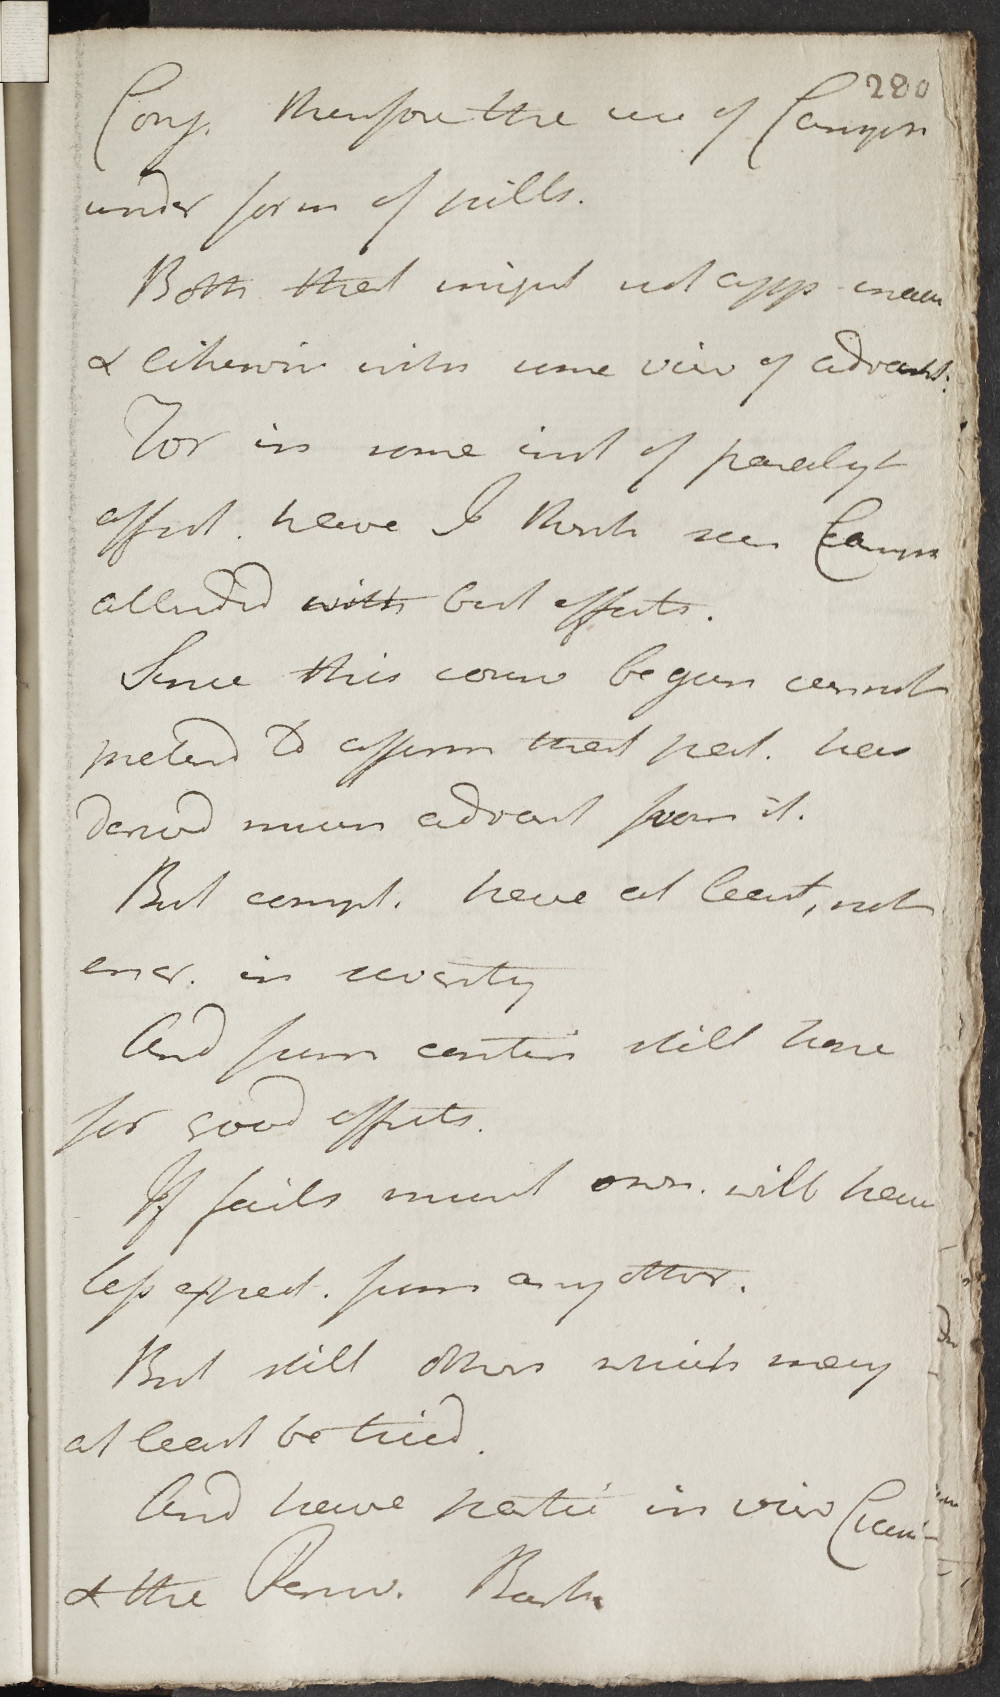 280
Conj. Therefore the use of Camphr
under form of pills.
Both that might not opp. mean
& likewise with some view of advant.
For in some inst of paralyt
affect. have I think seen Camph
attended with best effects.
Since this course begun cannot
pretend to affirm that pat. has
derived much advant from it.
But compt. have at least, not
encr. in severity
And from contin still hope
for good effects.
If fails must own. will have
less expect. from any other.
But still others which may
at least be tried.
And have partic in view
& the Peruv. Bark